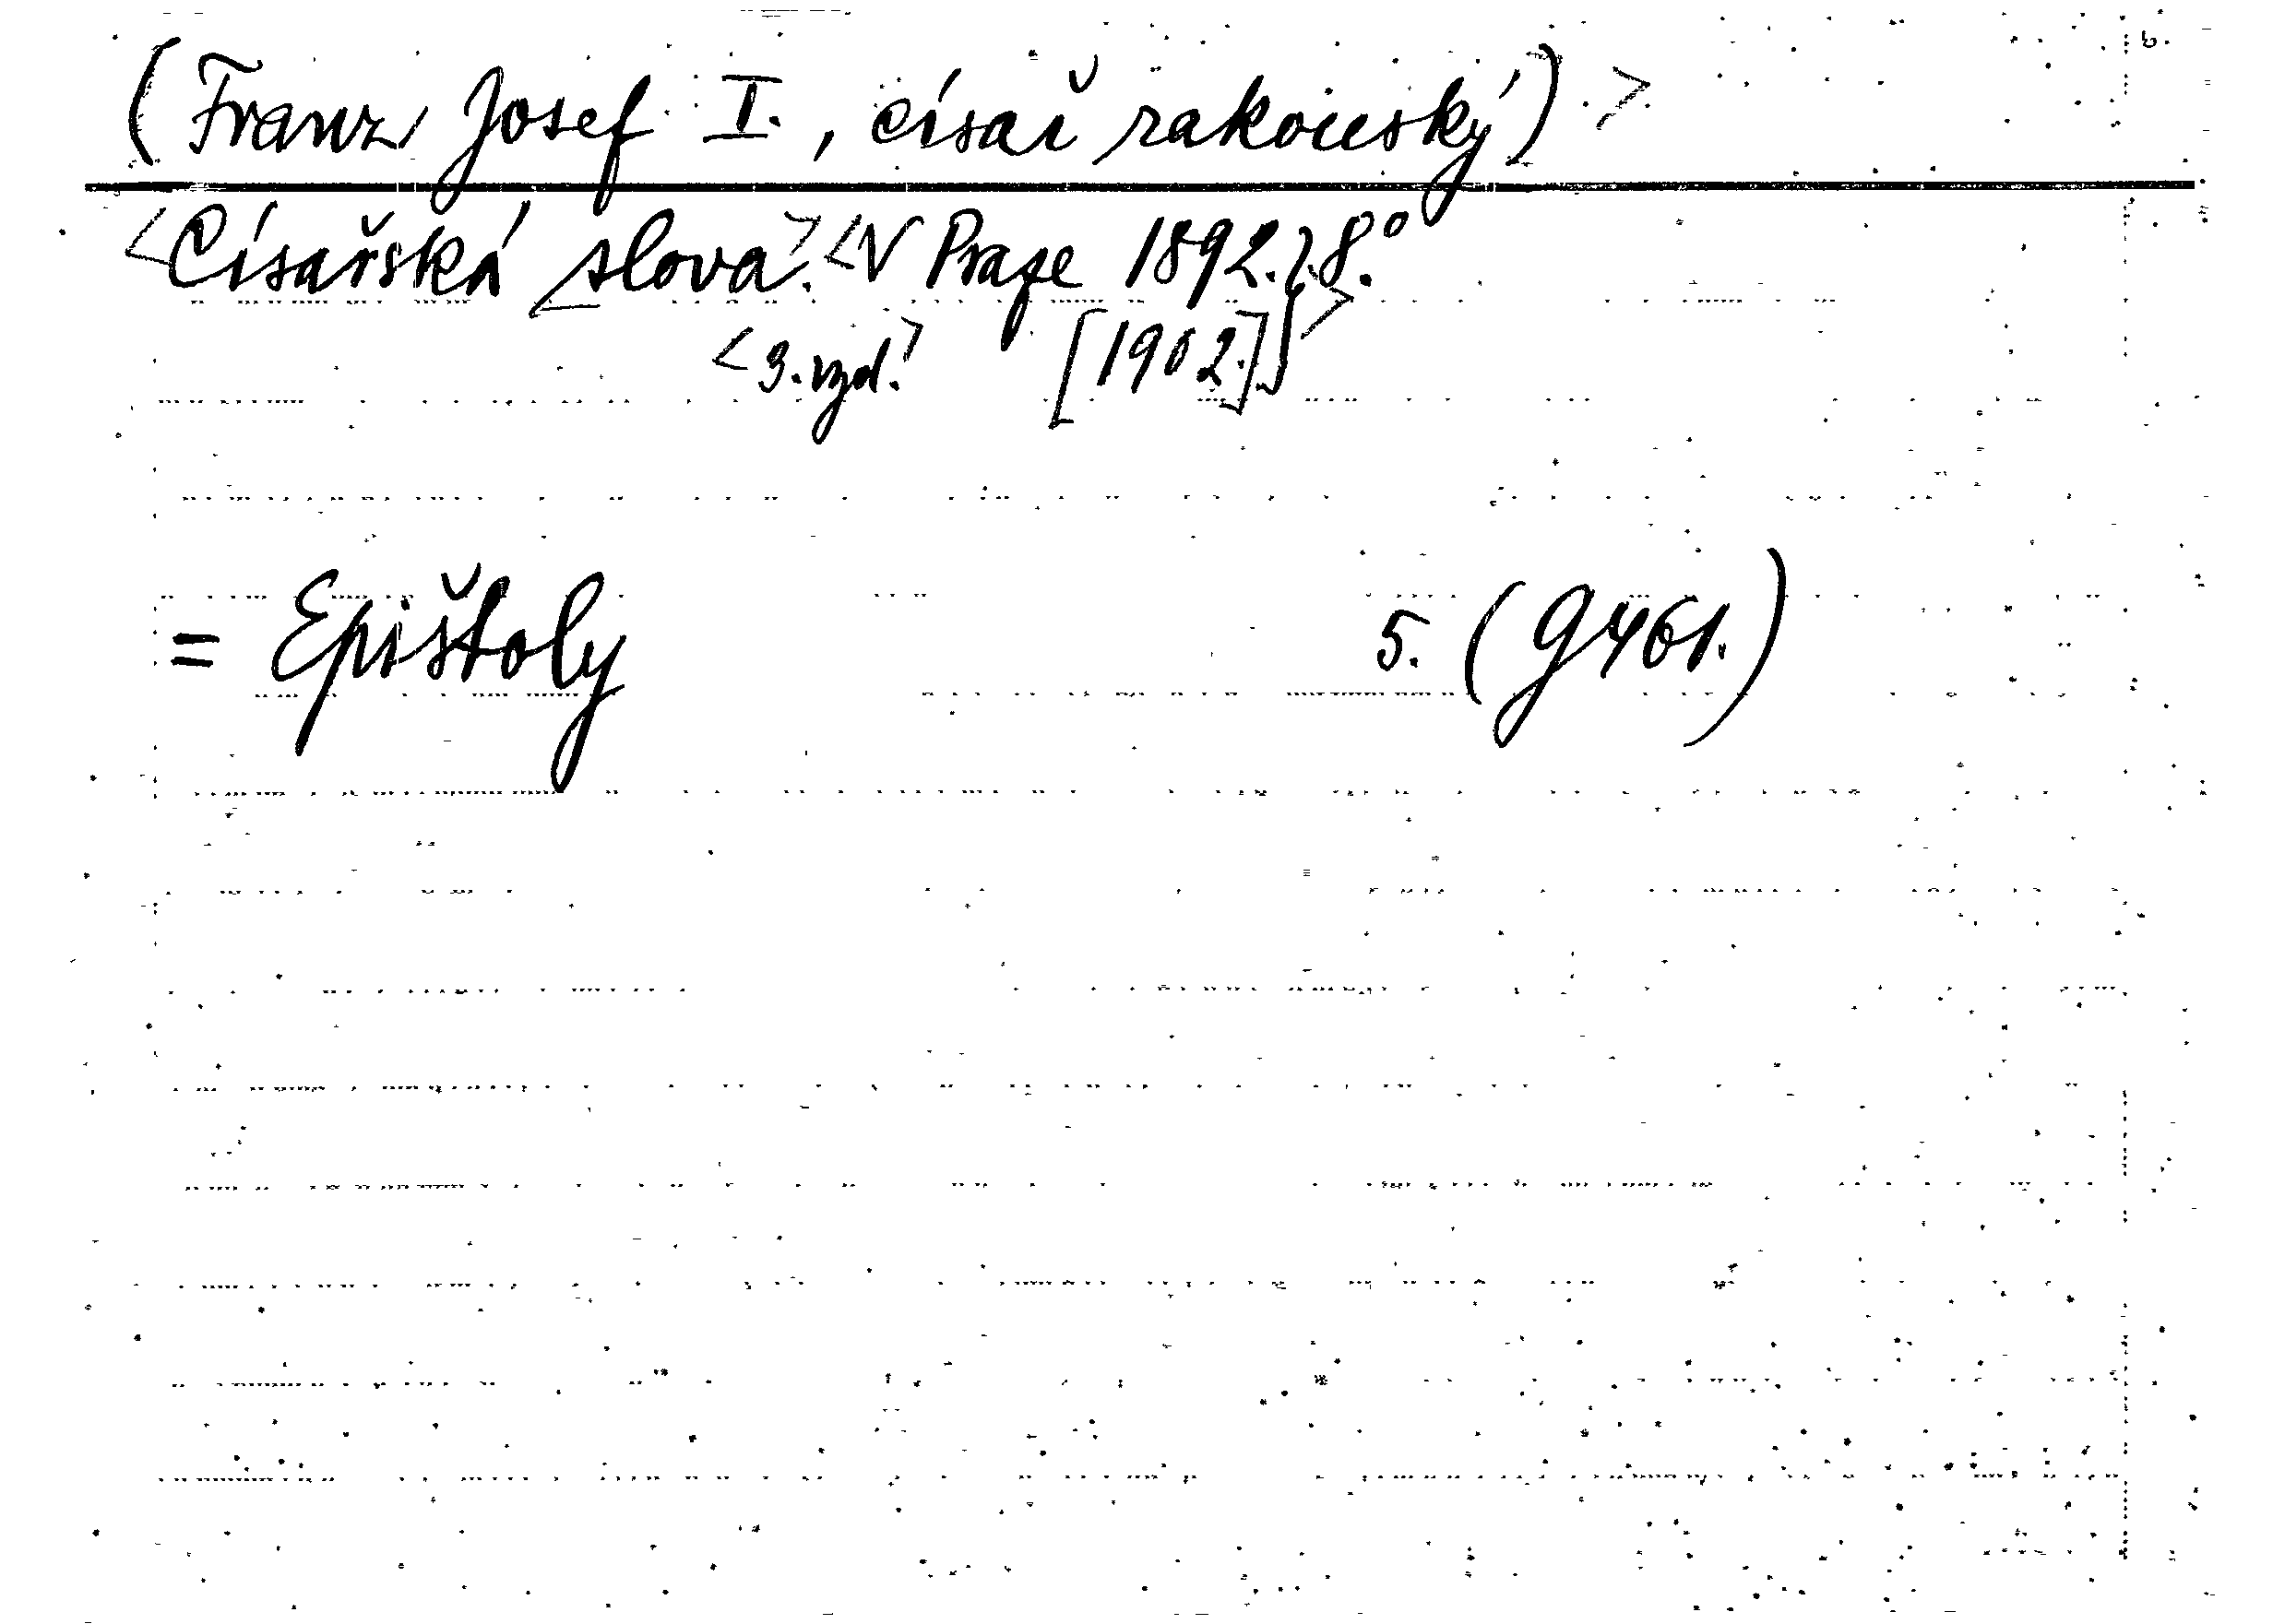 (Franz Josef I., císař rakouský) >
<Císařská slova.> <V Praze 1892. 8.°
<3. vyd.> [1902.] >
= Epištoly 5. (g461.)